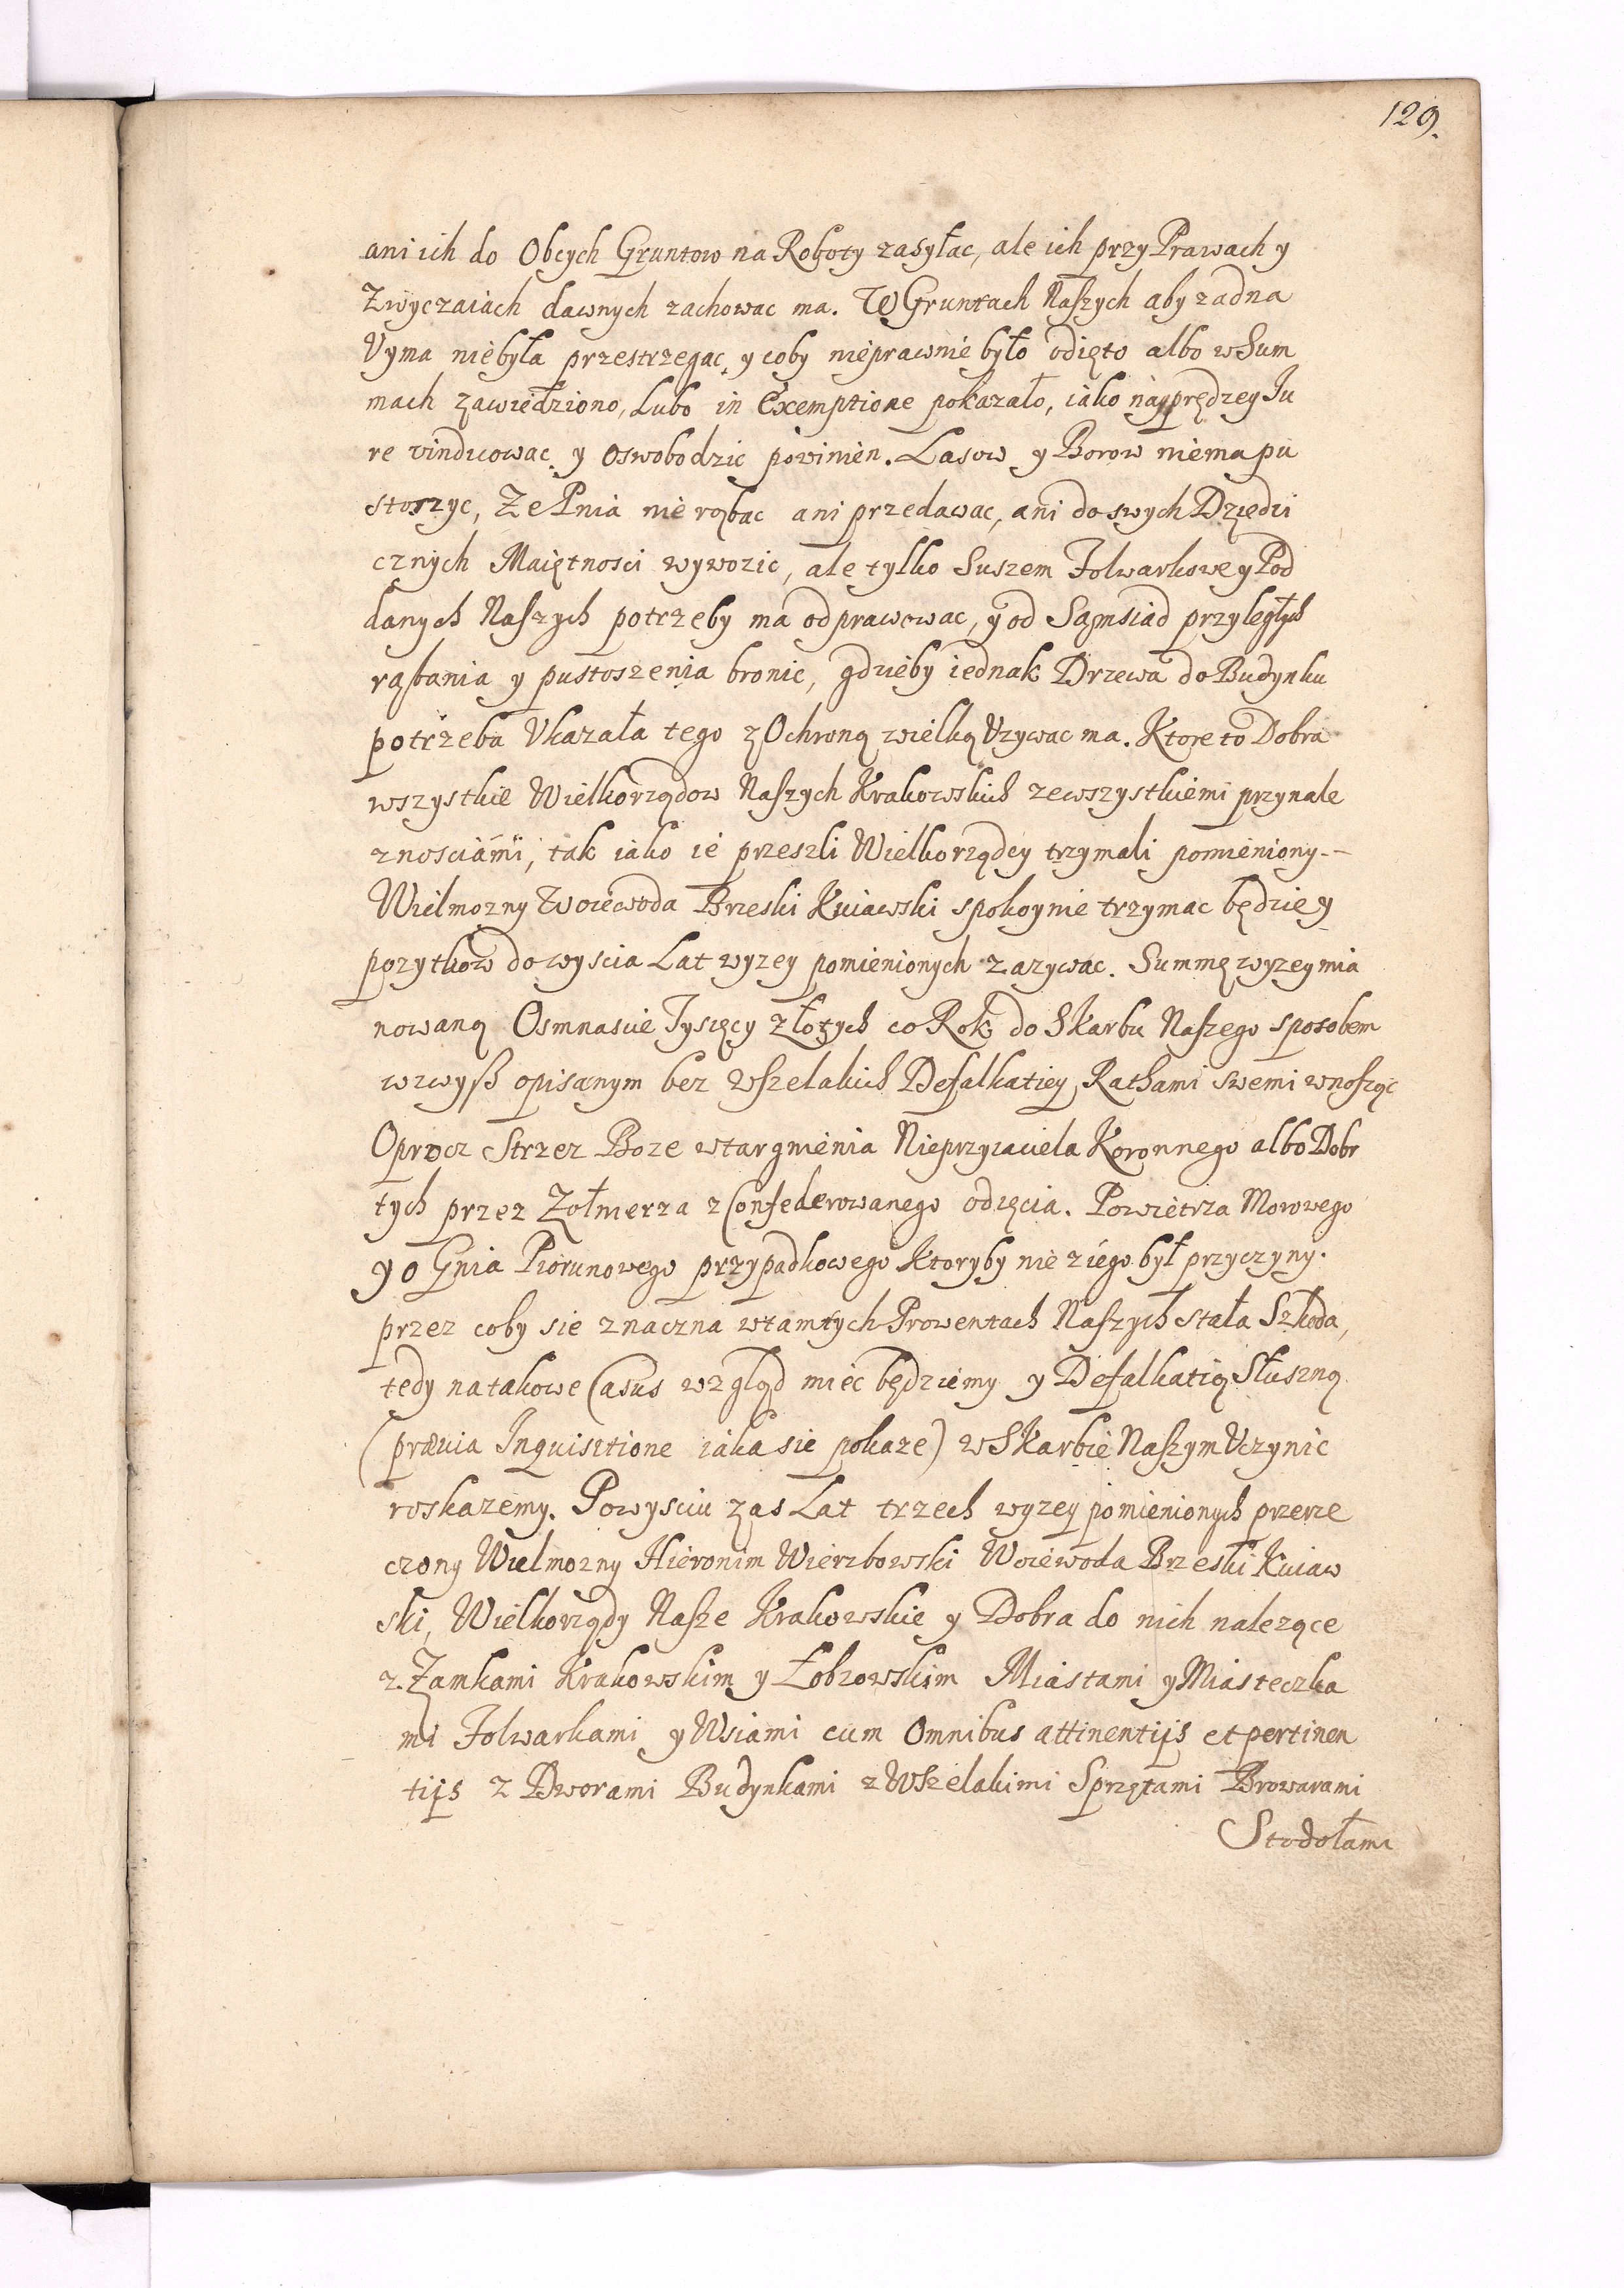 129.
ani ich do Obcych Gruntow na Roboty zasyłac, ale ich przy Prawach y
Zwyczaiach dawnych zachowac ma. W Gruntach Naszych aby zadna
Vyma niebyła przestrzegac, y coby nieprawnie było odięto albo w Sum
mach zawiedziono, Lubo in Exemptione pokazało, iako nayprędzey Iu
re vindicowac y Oswobodzic powinien. Lasow y Borow niema pu
stoszyc, Ze Pnia nie rąbac ani przedawac, ani do swych Dziedzi
cznych Maiętnosci wywozic, ale tylko Suszem Folwarkowe y Pod
danych Naszych potrzeby ma odprawowac, y od Sąmsiad przyległych
rąbania y pustoszenia bronic, gdzieby iednak Drzewa do Budynku
potrzeba Vkazała tego z Ochroną wielką Vzywac ma. Ktore to Dobra
wszystkie Wielkorządow Naszych Krakowskich ze wszystkiemi przynale
znosciami, tak iako ie przeszli Wielkorządcy trzymali pomieniony--
Wielmozny Woiewoda Brzeski Kuiawski spokoynie trzymac będzie y
pozytkow do wyscia Lat wyzey pomienionych zazywac. Summę wyzey mia
nowaną Osmnascie Tysięcy złotych co Rok do Skarbu Naszego sposobem
wzwyß opisanym bez wszelakich Defalkatiey Rathami swemi wnosząc
Oprocz Strzez Boze wtargnienia Nieprzyiaciela Koronnego albo Dobr
tych przez Zołnierza zConfederowanego odięcia. Powietrza Morowego
y o Gnia Piorunowego przypadkowego Ktoryby nie z iego był przyczyny.
przez coby sie znaczna w tamtych Prowentach Naszych stała Szkoda,
tedy na takowe Casus wzgląd miec będziemy y Defalkatią Słuszną
(prævia Inquisitione iaka sie pokaze) w Skarbie Naszym Vczynic
roskazemy. Po wysciu zas Lat trzech wyzey pomienionych przerze
czony Wielmozny Hieronim Wierzbowski Woiewoda Brzeski Kuiaw
ski, Wielkorządy Nasze Krakowskie y Dobra do nich nalezące
z Zamkami Krakowskim y Łobzowskim Miastami y Miasteczka
mi Folwarkami y Wsiami cum Omnibus attinentijs et pertinen
tijs z Dworami Budynkami z Wszelakimi Sprzętami Browarami
Stodołami